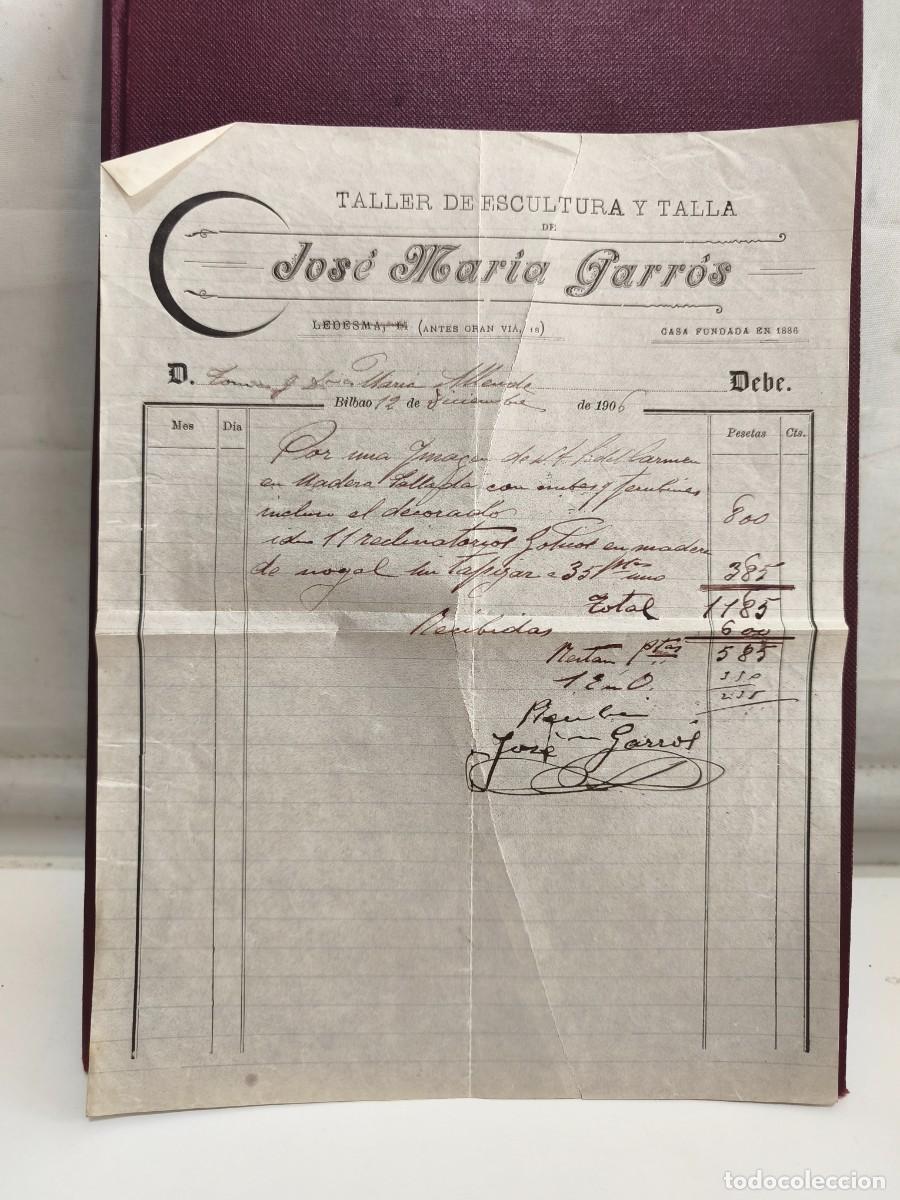 TALLER DE ESCULTURA Y TALLA
DE
José María Garrós
LEDESMA, 14 (ANTES GRAN VIA, 16)
CASA FUNDADA EN 1886
D. Tomás y José María Allende
Debe.
Bilbao 12 de Diciembre de 1906
Mes Dia Pesetas Cts.
Por una Ymagen de N. S. del Carmen
en Madera Tallada con nubes y serubines
incluso el decorado 800
11 reclinatorios Goticos en madera
de nogal sin tapizar a 35 ptas uno 385
Total 1185
Recibidas 600
Restan ptas 585
350
235
Recibi
José Garrós
todocoleccion